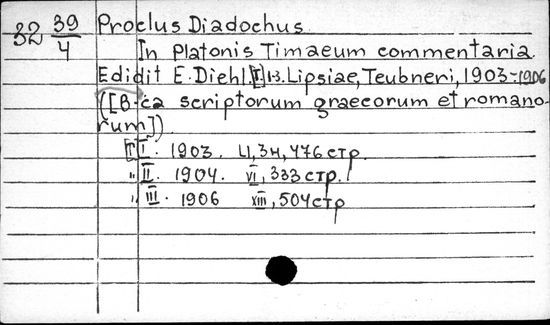 32 39/4
Proclus Diadochus.
In Platonis Timaeum commentaria.
Edidit E. Diehl. [I] 1-3. Lipsiae, Teubneri, 1903-1906
([B-ca scriptorum graecorum et romano-
rum])
[T] I. 1903. LI, 34, 476 стр.
" II. 1904. VI, 333 стр.
" III. 1906 XIII, 504 стр